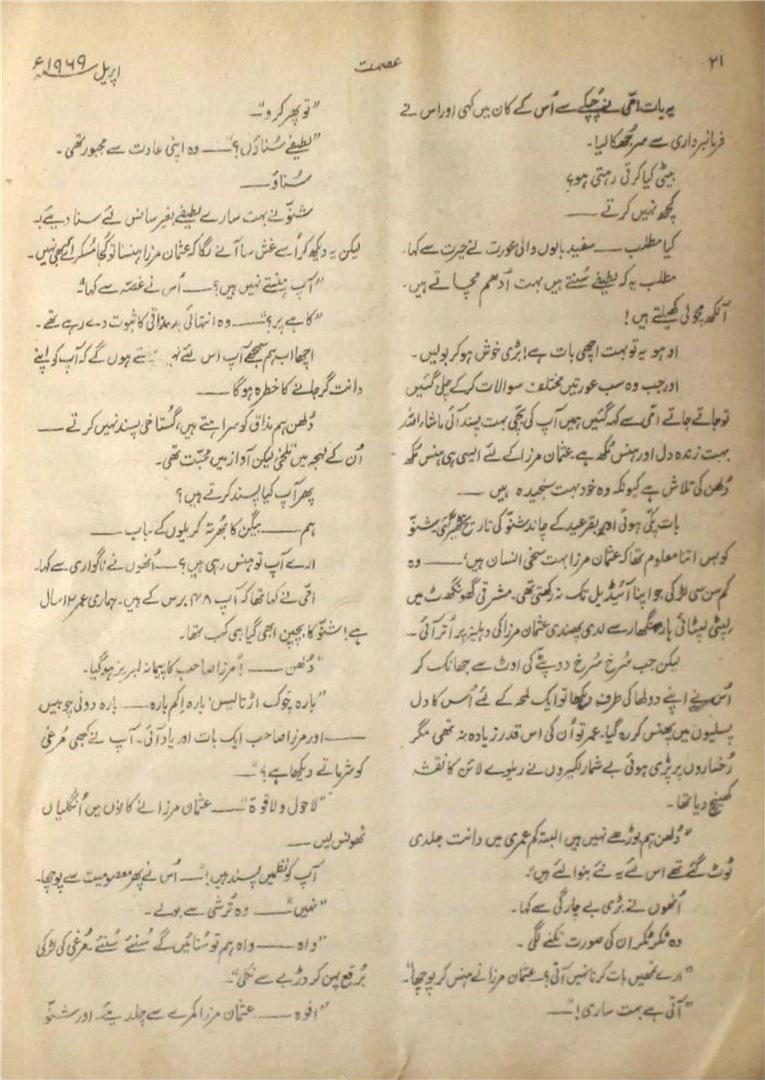 ۲۱
عصمت
اپریل ۱۹۶۹ء
یہ بات امّی نے چُپکے سے اُس کے کان میں کہی اور اس نے
فرمانبرداری سے سر جُھکا لیا۔
بیٹی کیا کرتی رہتی ہو؟
کچھ نہیں کرتے ——
کیا مطلب —— سفید بالوں والی عورت نے حیرت سے کہا۔
مطلب یہ کہ لطیفے سُنتے ہیں بہت اُدھم مچاتے ہیں۔
آنکھ مچولی کھیلتے ہیں!
اوہو یہ تو بہت اچھی بات ہے! بڑی خوش ہو کر بولیں۔
اور جب وہ سب عورتیں مختلف سوالات کر کے چلی گئیں
تو جاتے جاتے امّی سے کہہ گئیں ہمیں آپ کی بچّی بہت پسند آئی ماشاء اللہ
بہت زندہ دل اور ہنس مُکھ ہے۔ عثمان مرزا کے لئے ایسی ہی ہنس مُکھ
دُلھن کی تلاش ہے کیونکہ وہ خود بہت سنجیدہ ہیں ——
بات پکّی ہوئی اور بقر عید کے چاند شنّو کی تاریخ ٹھہر گئی شنّو
کو بس اتنا معلوم تھا کہ عثمان مرزا بہت سخی انسان ہیں‘ —— وہ
کم سن سی لڑکی جو اپنا آئیڈیل تک نہ رکھتی تھی۔ مشرقی گھونگھٹ میں
لپٹی لپٹائی ہار سنگھار سے لدی پھندی عثمان مرزا کی دہلیز پر اُتر آئی۔
لیکن جب سُرخ سُرخ دوپٹّے کی اوٹ سے جھانک کر
اُس نے اپنے دولھا کی طرف دیکھا تو ایک لمحہ کے لئے اُس کا دل
پسلیوں میں پھنس کر رہ گیا۔ عمر تو اُن کی اس قدر زیادہ نہ تھی مگر
رُخساروں پر پڑی ہوئی بے شمار لکیروں نے ریلوے لائن کا نقشہ
کھینچ دیا تھا۔
”دُلھن ہم بوڑھے نہیں ہیں البتہ کم عمری میں دانت جلدی
ٹوٹ گئے تھے اس لئے یہ نئے بنوائے ہیں“۔
اُنھوں نے بڑی بے چارگی سے کہا۔
وہ ٹکر ٹکر ان کی صورت تکنے لگی۔
”ارے تمھیں بات کرنا نہیں آتی؟۔ عثمان مرزا نے ہنس کر پوچھا“۔
”آتی ہے بہت ساری!“——
”تو پھر کرو“——
”لطیفے سُناؤں؟“—— وہ اپنی عادت سے مجبور تھی۔
سُناؤ ——
شنّو نے بہت سارے لطیفے بغیر سانس لئے سنا دیئے۔
لیکن یہ دیکھ کر اُسے غش سا آنے لگا کہ عثمان مرزا ہنسنا تو کُجا مُسکرائے بھی نہیں۔
”آپ ہنستے نہیں ہیں؟—— اُس نے غصّہ سے کہا“۔
”کاہے پر؟“—— وہ انتہائی بد مذاقی کا ثبوت دے رہے تھے۔
اچھا اب ہم سمجھے آپ اس لئے ہنستے ہوں گے کہ آپ کو اپنے
دانت گر جانے کا خطرہ ہوگا ——
دُلھن ہم مذاق کو سراہتے ہیں، گستاخی پسند نہیں کرتے ——
اُن کے لہجہ میں تلخی لیکن آواز میں محبّت تھی۔
پھر آپ کیا پسند کرتے ہیں؟
ہم —— بیگن کا بھُرتہ کریلوں کے کباب ——
ارے آپ تو ہنس رہی ہیں؟—— اُنھوں نے ناگواری سے کہا۔
امّی نے کہا تھا کہ آپ ۴۸ برس کے ہیں۔ ہماری عمر ۱۲ سال
ہے! شنّو کا بچپن ابھی گیا ہی کب تھا۔
”دُلھن —— !مرزا صاحب کا پیمانہ لبریز ہو گیا۔
”بارہ چَوک اڑتالیس‘ بارہ اِکم بارہ —— بارہ دونی چوبیس
—— اور مرزا صاحب ایک بات اور یاد آئی۔ آپ نے کبھی مُرغی
کو شرماتے دیکھا ہے؟“——
”لاحول ولاقوة“—— عثمان مرزا نے کانوں میں اُنگلیاں
ٹھونس لیں ——
آپ کو نظمیں پسند ہیں!—— اُس نے پھر معصومیت سے پوچھا۔
”نہیں“—— وہ تُرشی سے بولے۔
”واہ —— واہ ہم تو سُنائیں گے سُنئے سُنئے۔ مُرغی کی لڑکی
بُرقع پہن کر دڑبے سے نکلی“۔
”افوہ —— عثمان مرزا کمرے سے چلدیئے۔ اور شنّو